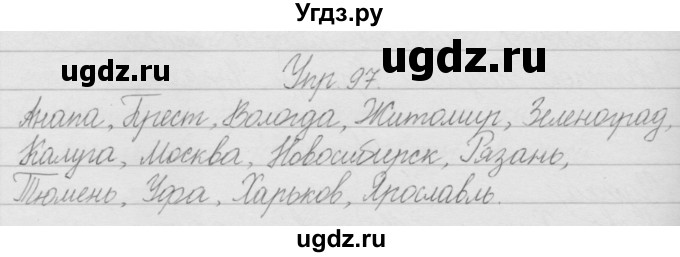 Угдз.ру
ugdz.ru ugdz.ru
Упр. 97.
Анапа, Брест, Вологда, Житомир, Зеленоград,
Калуга, Москва, Новосибирск, Рязань,
Тюмень, Уфа, Харьков, Ярославль.
ugdz.ru ugdz.ru
ugdz.ru